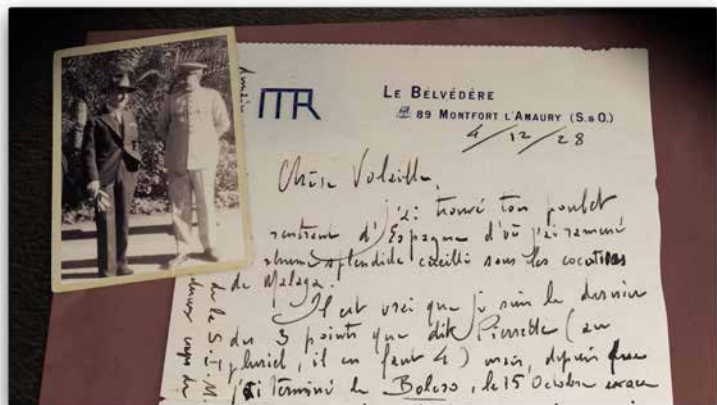 MR
LE BELVÉDÈRE
89 MONTFORT L'AMAURY (S.&O.)
4/12/28
Chère Volaille,
j'ai trouvé ton poulet
rentrant d'Espagne d'où j'ai ramené
rhume splendide cueilli sous les cocotiers
de Malaga.
Il est vrai que je suis le dernier
des 3 points que dit Pierrette (au
pluriel, il en faut 4) mais, depuis
j'ai terminé le Bolero, le 15 Octobre
de la S.I.M.